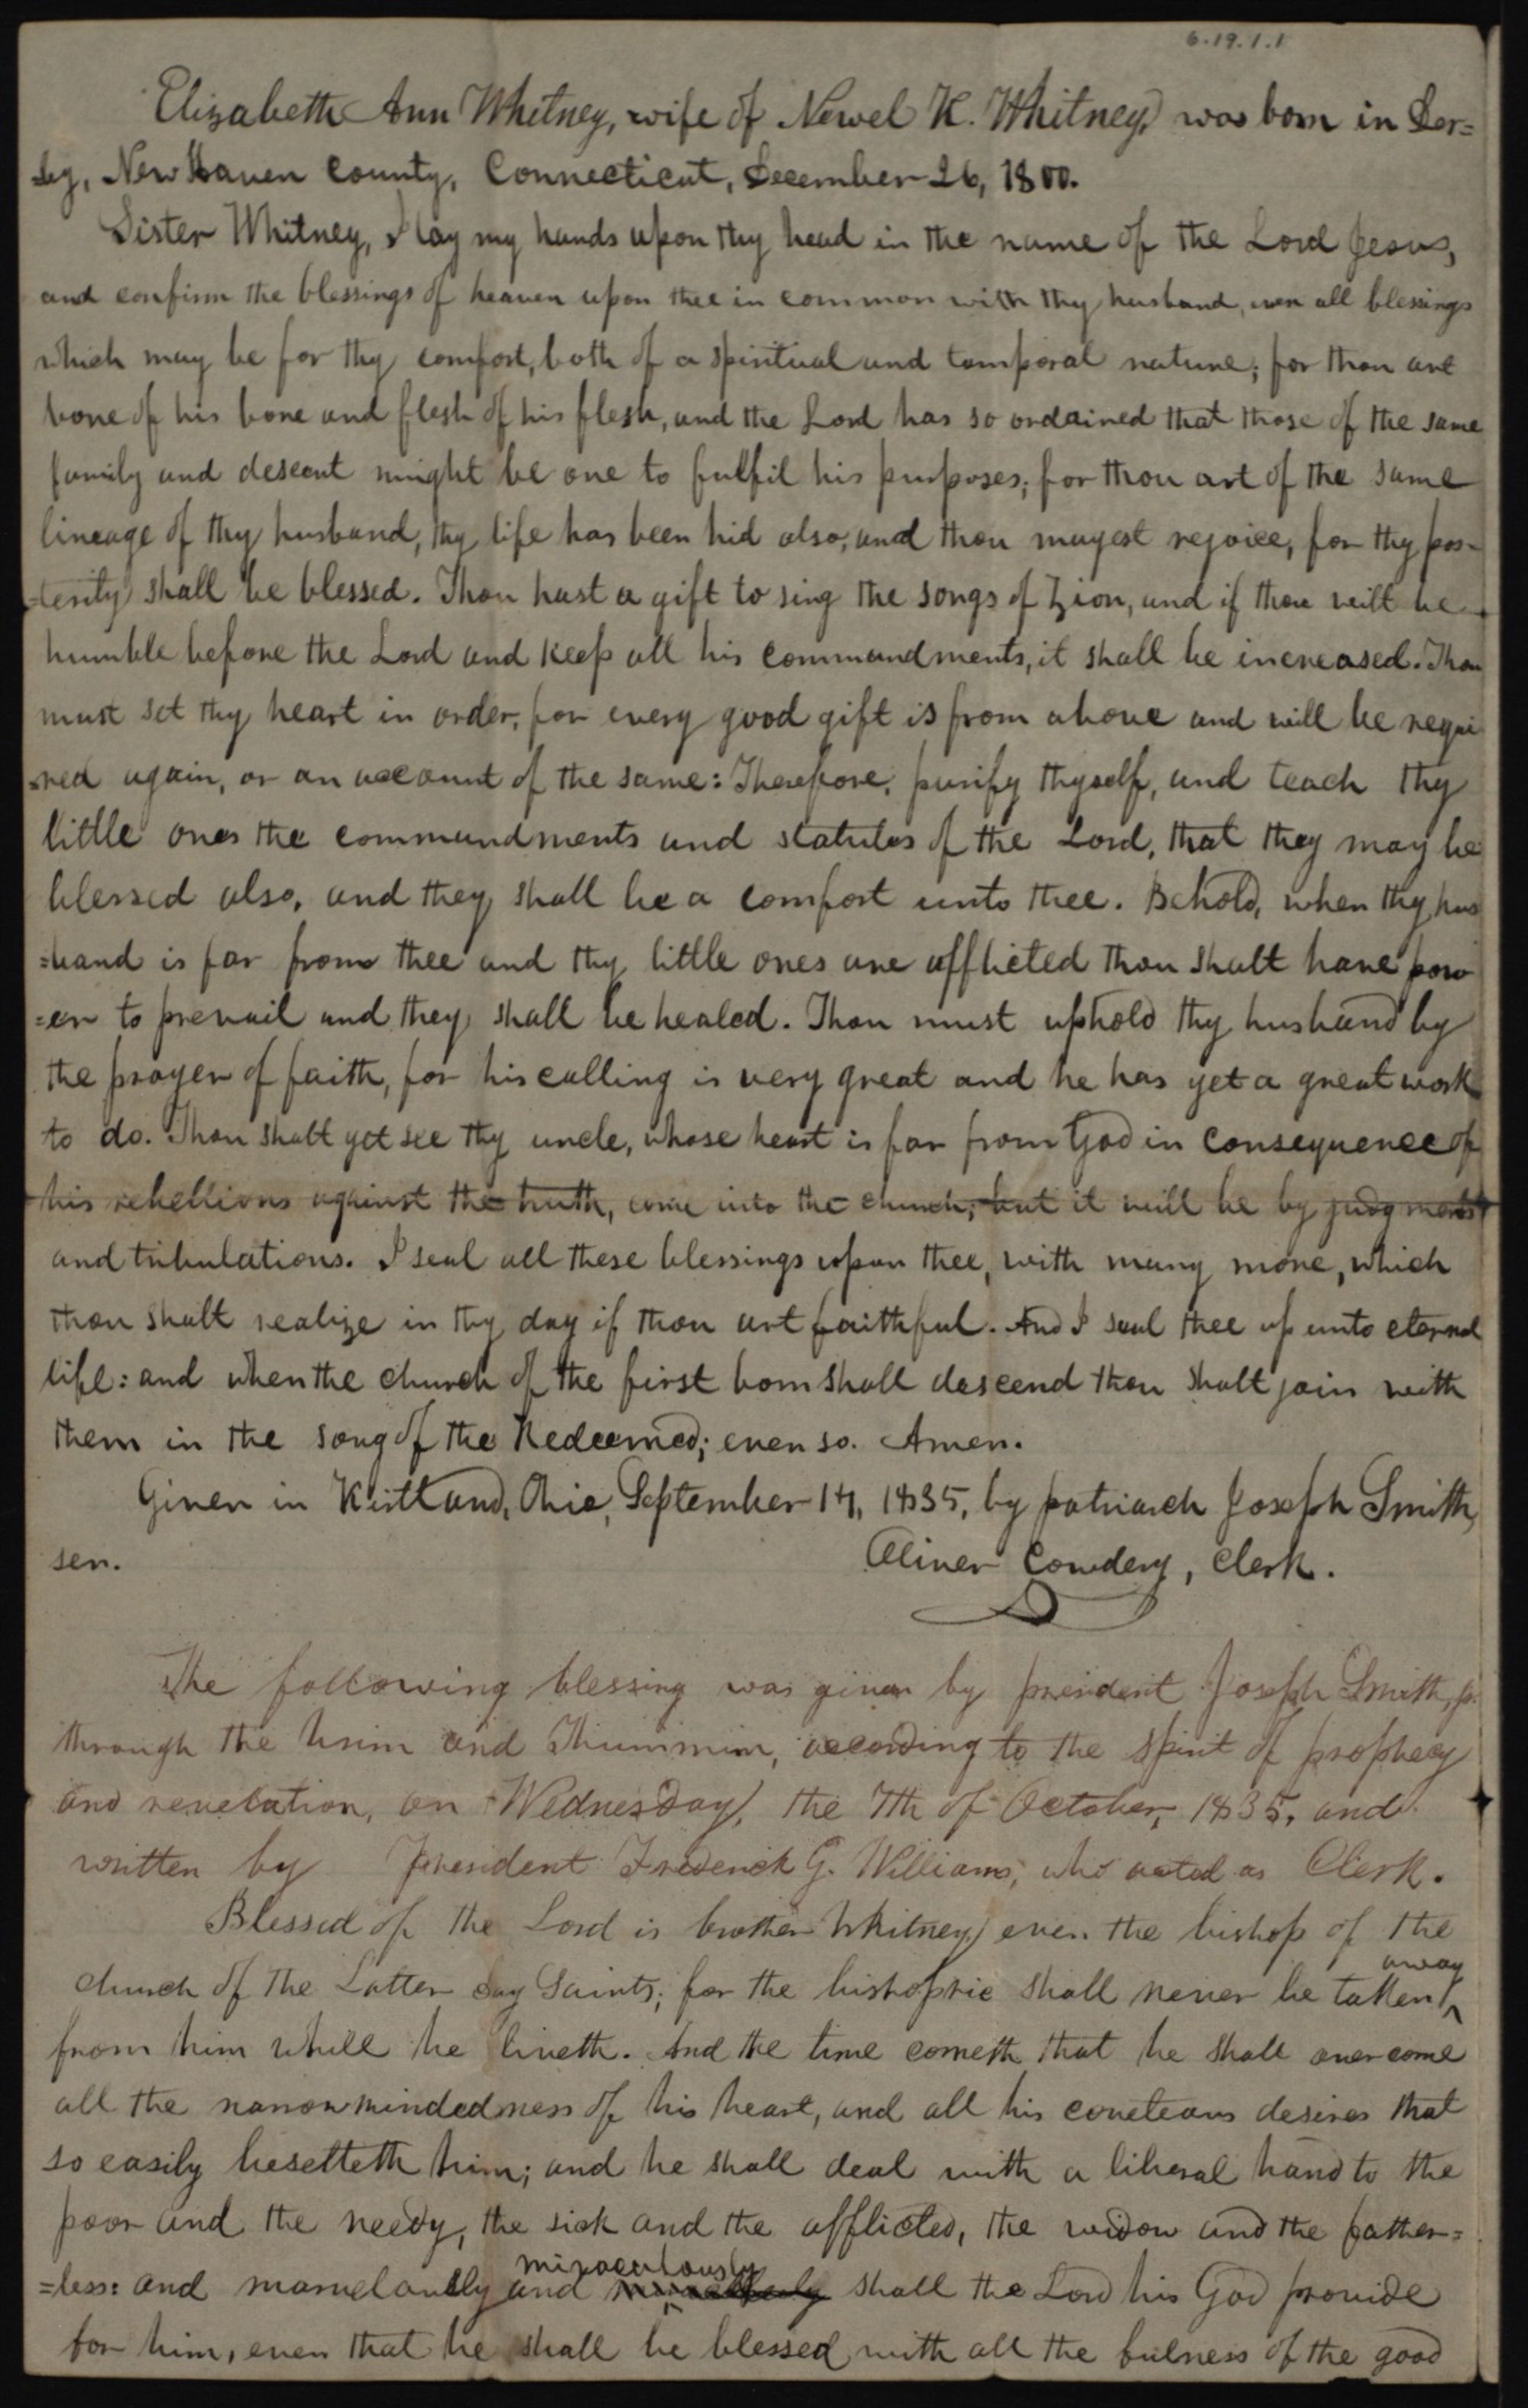 6.19.1.1
Elizabeth Ann Whitney, wife of Newel K. Whitney, was born in Der=
-by, New Haven County, Connecticut, December 26, 1800.
Sister Whitney, I lay my hands upon thy head in the name of the Lord Jesus,
and confirm the blessings of heaven upon thee in common with thy husband, even all blessings
which may be for thy comfort, both of a spiritual and temporal nature; for thou art
bone of his bone and flesh of his flesh, and the Lord has so ordained that those of the same
family and descent might be one to fulfil his purposes; for thou art of the same
lineage of thy husband, thy life has been hid also, and thou mayest rejoice, for thy pos-
-terity shall be blessed. Thou hast a gift to sing the songs of Zion, and if thou wilt be
humble before the Lord and keep all his commandments, it shall be increased. Thou
must set thy heart in order, for every good gift is from above and will be requi
-red again, or an account of the same: Therefore, purify thyself, and teach thy
little ones the commandments and statutes of the Lord, that they may be
blessed also, and they shall be a comfort unto thee. Behold, when thy hus
=band is far from thee and thy little ones are afflicted thou shalt have pow
=er to prevail and they shall be healed. Thou must uphold thy husband by
the prayer of faith, for his calling is very great and he has yet a great work
to do. Thou shalt yet see thy uncle, whose heart is far from God in consequence of
his rebellions against the truth, come into the church; but it will be by judgments
and tribulations. I seal all these blessings upon thee, with many more, which
thou shalt realize in thy day if thou art faithful. And I seal thee up unto eternal
life: and when the church of the first born shall descend thou shalt join with
them in the song of the Redeemed; even so. Amen.
Given in Kirtland, Ohio, September 14, 1835, by patriarch Joseph Smith,
sen. Oliver Cowdery, Clerk.
The following blessing was given by president Joseph Smith, jr.
through the Urim and Thummim, according to the spirit of prophecy
and revelation, on Wednesday, the 7th of October, 1835, and
written by President Frederick G. Williams, who acted as Clerk.
Blessed of the Lord is brother Whitney, even the bishop of the
church of the Latter day Saints, for the bishopric shall never be taken away
from him while he liveth. And the time cometh that he shall overcome
all the narrow mindedness of his heart, and all his coveteous desires that
so easily besetteth him; and he shall deal with a liberal hand to the
poor and the needy, the sick and the afflicted, the widow and the father=
=less: and marvelously and miraculously shall the Lord his God provide
for him, even that he shall be blessed with all the fulness of the good